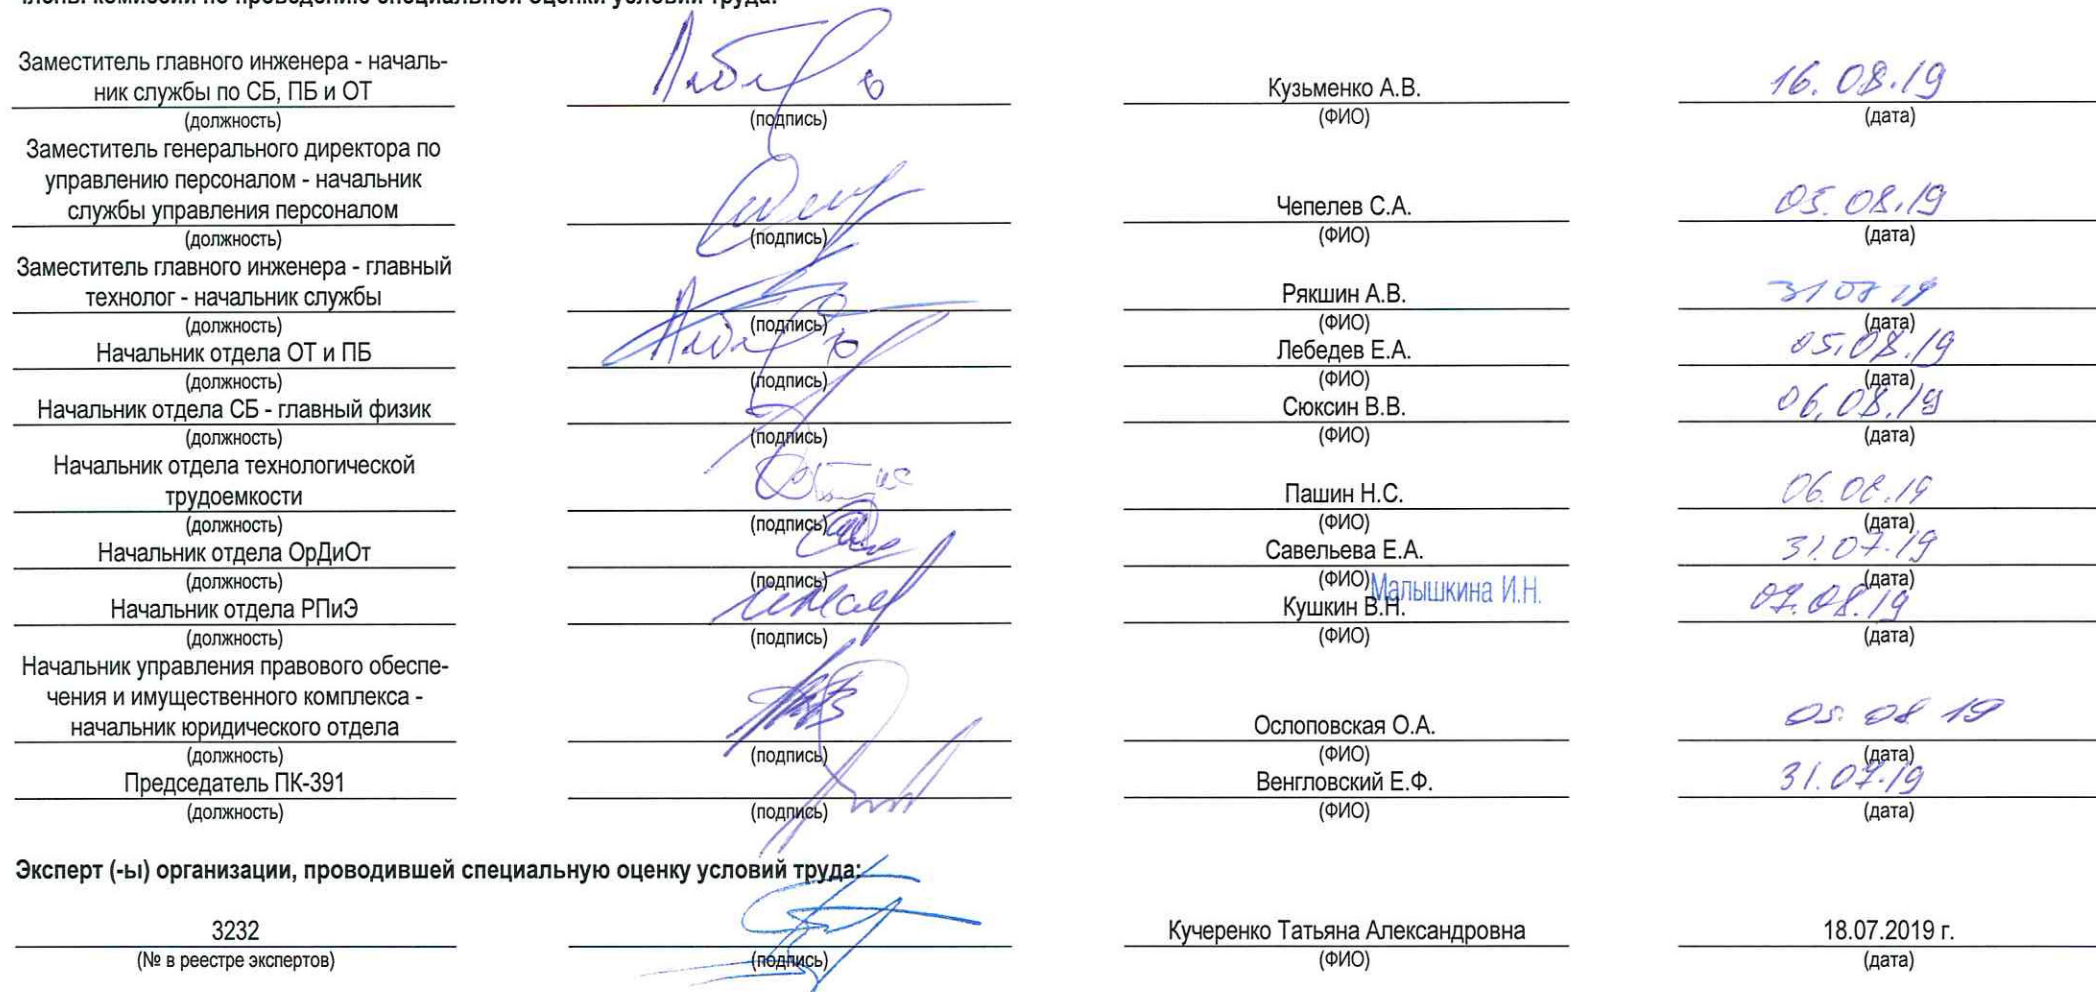 Члены комиссии по проведению специальной оценки условий труда:
Заместитель главного инженера - началь-
ник службы по СБ, ПБ и ОТ
Кузьменко А.В.
16.08.19
(должность) (подпись) (ФИО) (дата)
Заместитель генерального директора по
управлению персоналом - начальник
службы управления персоналом
Чепелев С.А.
05.08.19
(должность) (подпись) (ФИО) (дата)
Заместитель главного инженера - главный
технолог - начальник службы
Рякшин А.В.
31 07 19
(должность) (подпись) (ФИО) (дата)
Начальник отдела ОТ и ПБ
Лебедев Е.А.
05.08.19
(должность) (подпись) (ФИО) (дата)
Начальник отдела СБ - главный физик
Сюксин В.В.
06.08.19
(должность) (подпись) (ФИО) (дата)
Начальник отдела технологической
трудоемкости
Пашин Н.С.
06.08.19
(должность) (подпись) (ФИО) (дата)
Начальник отдела ОрДиОт
Савельева Е.А.
31.07.19
(должность) (подпись) (ФИО) (дата)
Малышкина И.Н.
Начальник отдела РПиЭ
Кушкин В.Н.
07.08.19
(должность) (подпись) (ФИО) (дата)
Начальник управления правового обеспе-
чения и имущественного комплекса -
начальник юридического отдела
Ослоповская О.А.
05.08 19
(должность) (подпись) (ФИО) (дата)
Председатель ПК-391
Венгловский Е.Ф.
31.07.19
(должность) (подпись) (ФИО) (дата)
Эксперт (-ы) организации, проводившей специальную оценку условий труда:
3232
Кучеренко Татьяна Александровна
18.07.2019 г.
(№ в реестре экспертов) (подпись) (ФИО) (дата)